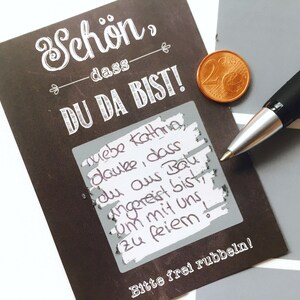 Schön,
dass
DU DA BIST!
Liebe Kathrin
danke, dass
du aus
angereist bist
um mit uns
zu feiern!
Bitte frei rubbeln!
2